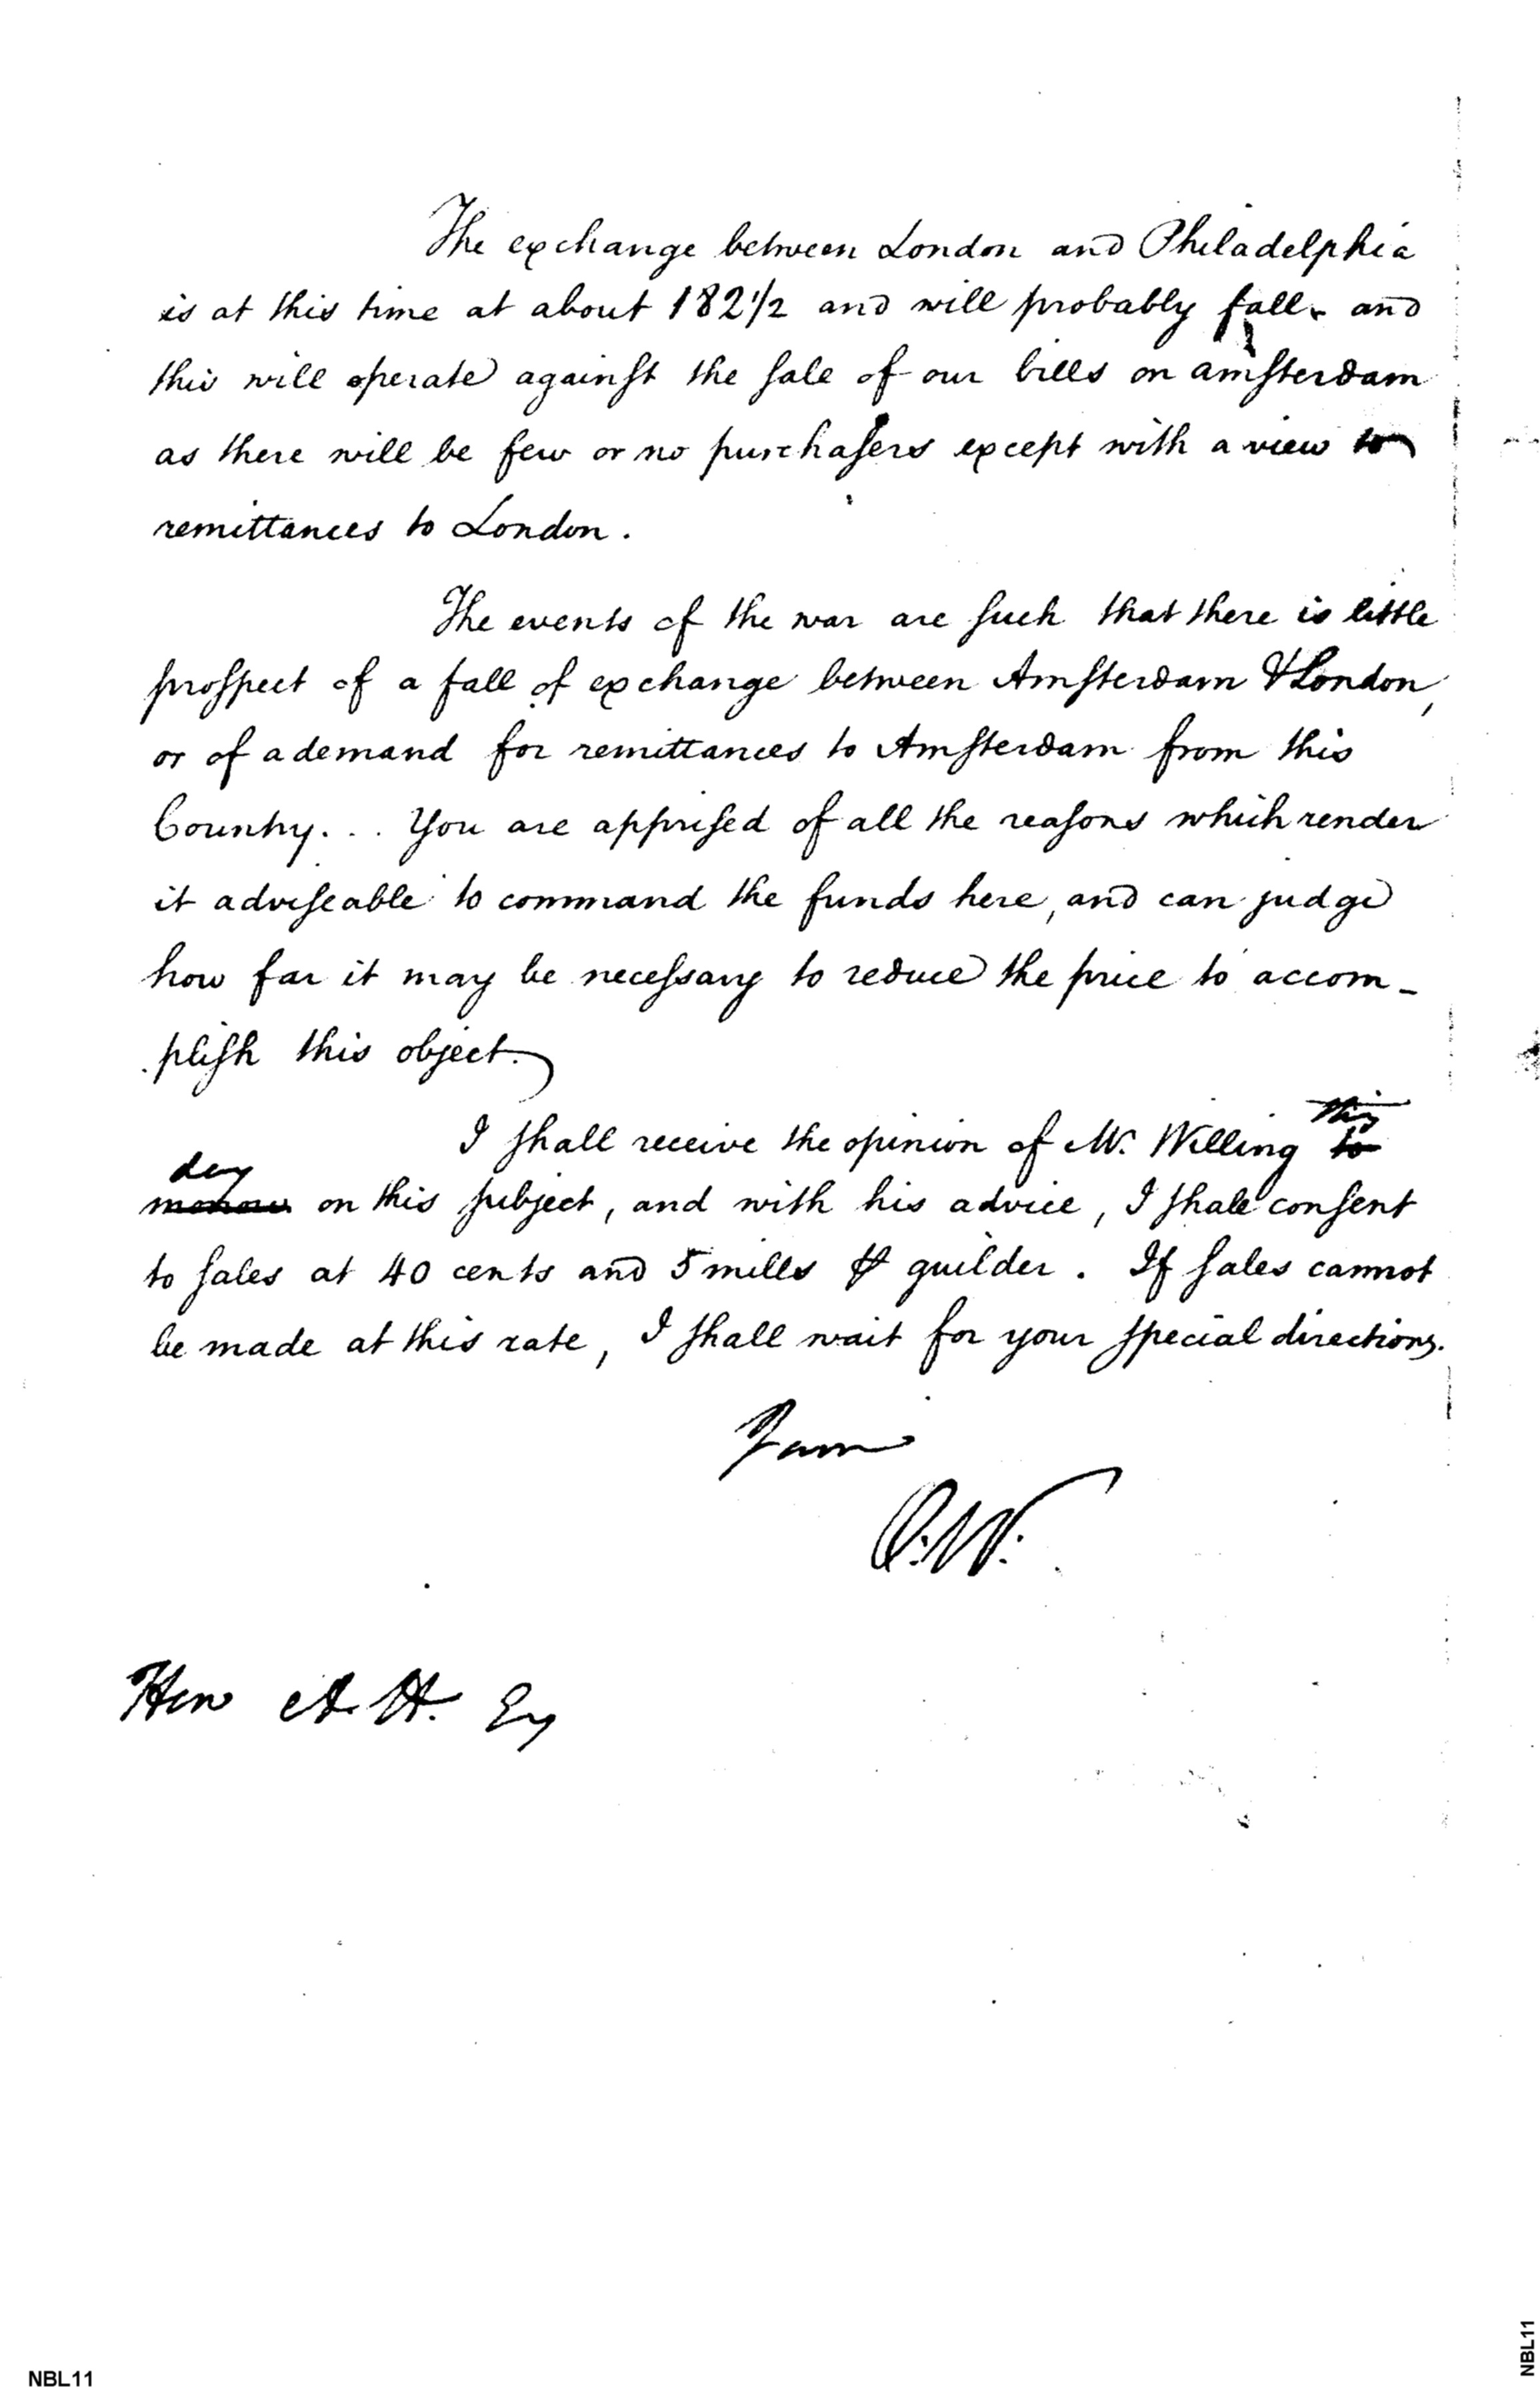 The exchange between London and Philadelphia
is at this time at about 182 1/2 and will probably fall and
this will operate against the sale of our bills on amsterdam
as there will be few or no purchasers except with a view to
remittances to London.
The events of the war are such that there is little
prospect of a fall of exchange between Amsterdam & London,
or of a demand for remittances to Amsterdam from this
Country. . . You are apprised of all the reasons which render
it adviseable to command the funds here, and can judge
how far it may be necessary to reduce the price to accom-
plish this object.
this
I shall receive the opinion of Mr. Willing to
day
morrow on this subject, and with his advice, I shall consent
to sales at 40 cents and 5 mills ⅌ guilder. If sales cannot
be made at this rate, I shall wait for your special directions.
I am
O.W.
Hon A. H. Esq
NBL11
NBL11